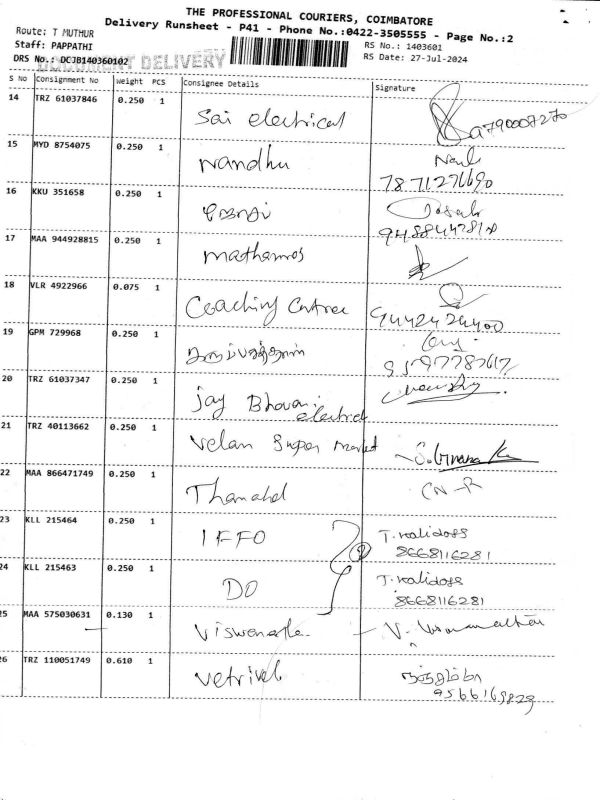 THE PROFESSIONAL COURIERS, COIMBATORE
Delivery Runsheet - P41 - Phone No.:0422-3505555 - Page No.:2
Route: T MUTHUR
Staff: PAPPATHI
RS No.: 1403601
DRS No.: DCJB140360102
DOCUMENT DELIVERY
RS Date: 27-Jul-2024
S No Consignment No Weight PCS Consignee Details Signature
14 TRZ 61037846 0.250 1 Sai electrical
15 MYD 8754075 0.250 1 Nandhu
7871276690
16 KKU 351658 0.250 1
17 MAA 944928815 0.250 1 mathamos
18 VLR 4922966 0.075 1 Coaching Centree
9442424400
19 GPM 729968 0.250 1
20 TRZ 61037347 0.250 1 Jay Bhavani
electrical
21 TRZ 40113662 0.250 1 Velan Super market
22 MAA 866471749 0.250 1
23 KLL 215464 0.250 1 IFFO T. Kalidoss
8668116281
24 KLL 215463 0.250 1 DO T. Kalidoss
8668116281
25 MAA 575030631 0.130 1
26 TRZ 110051749 0.610 1 Vetrivel
9566169829